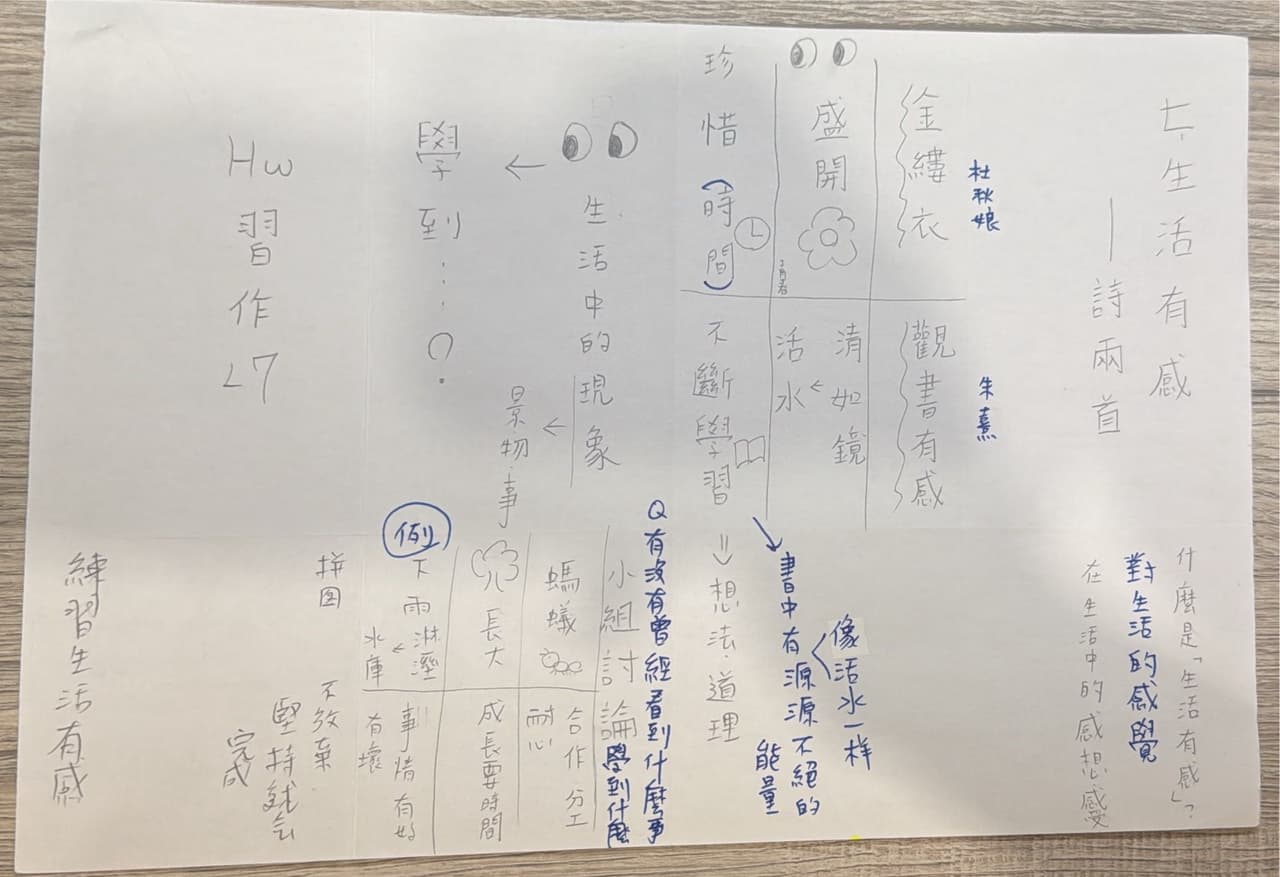 七、生活有感
—詩兩首
什麼是「生活有感」?
對生活的感覺
在生活中的感想感受
杜秋娘
朱熹
金縷衣
觀書有感
盛開
青春
清如鏡
活水
珍惜(時間)
不斷學習
⇒想法、道理
像活水一样
書中有源源不絕的
能量
生活中的現象
景、物、事
學到…?
Q有没有曾經看到什麼事
學到什麼
小組討論
螞蟻
合作分工
耐心
長大
成長要時間
例
下雨淋溼
水庫
事情有好
有壞
拼图
不放棄
堅持就会
完成
HW習作L7
練習生活有感